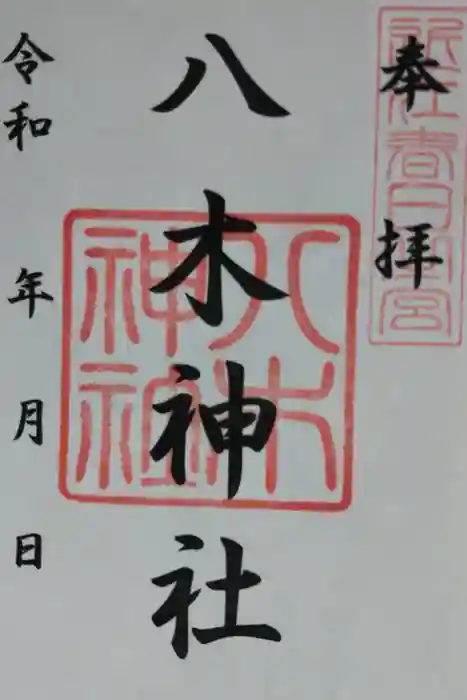 奉拝
八木神社
令和 年 月 日
八木
神社